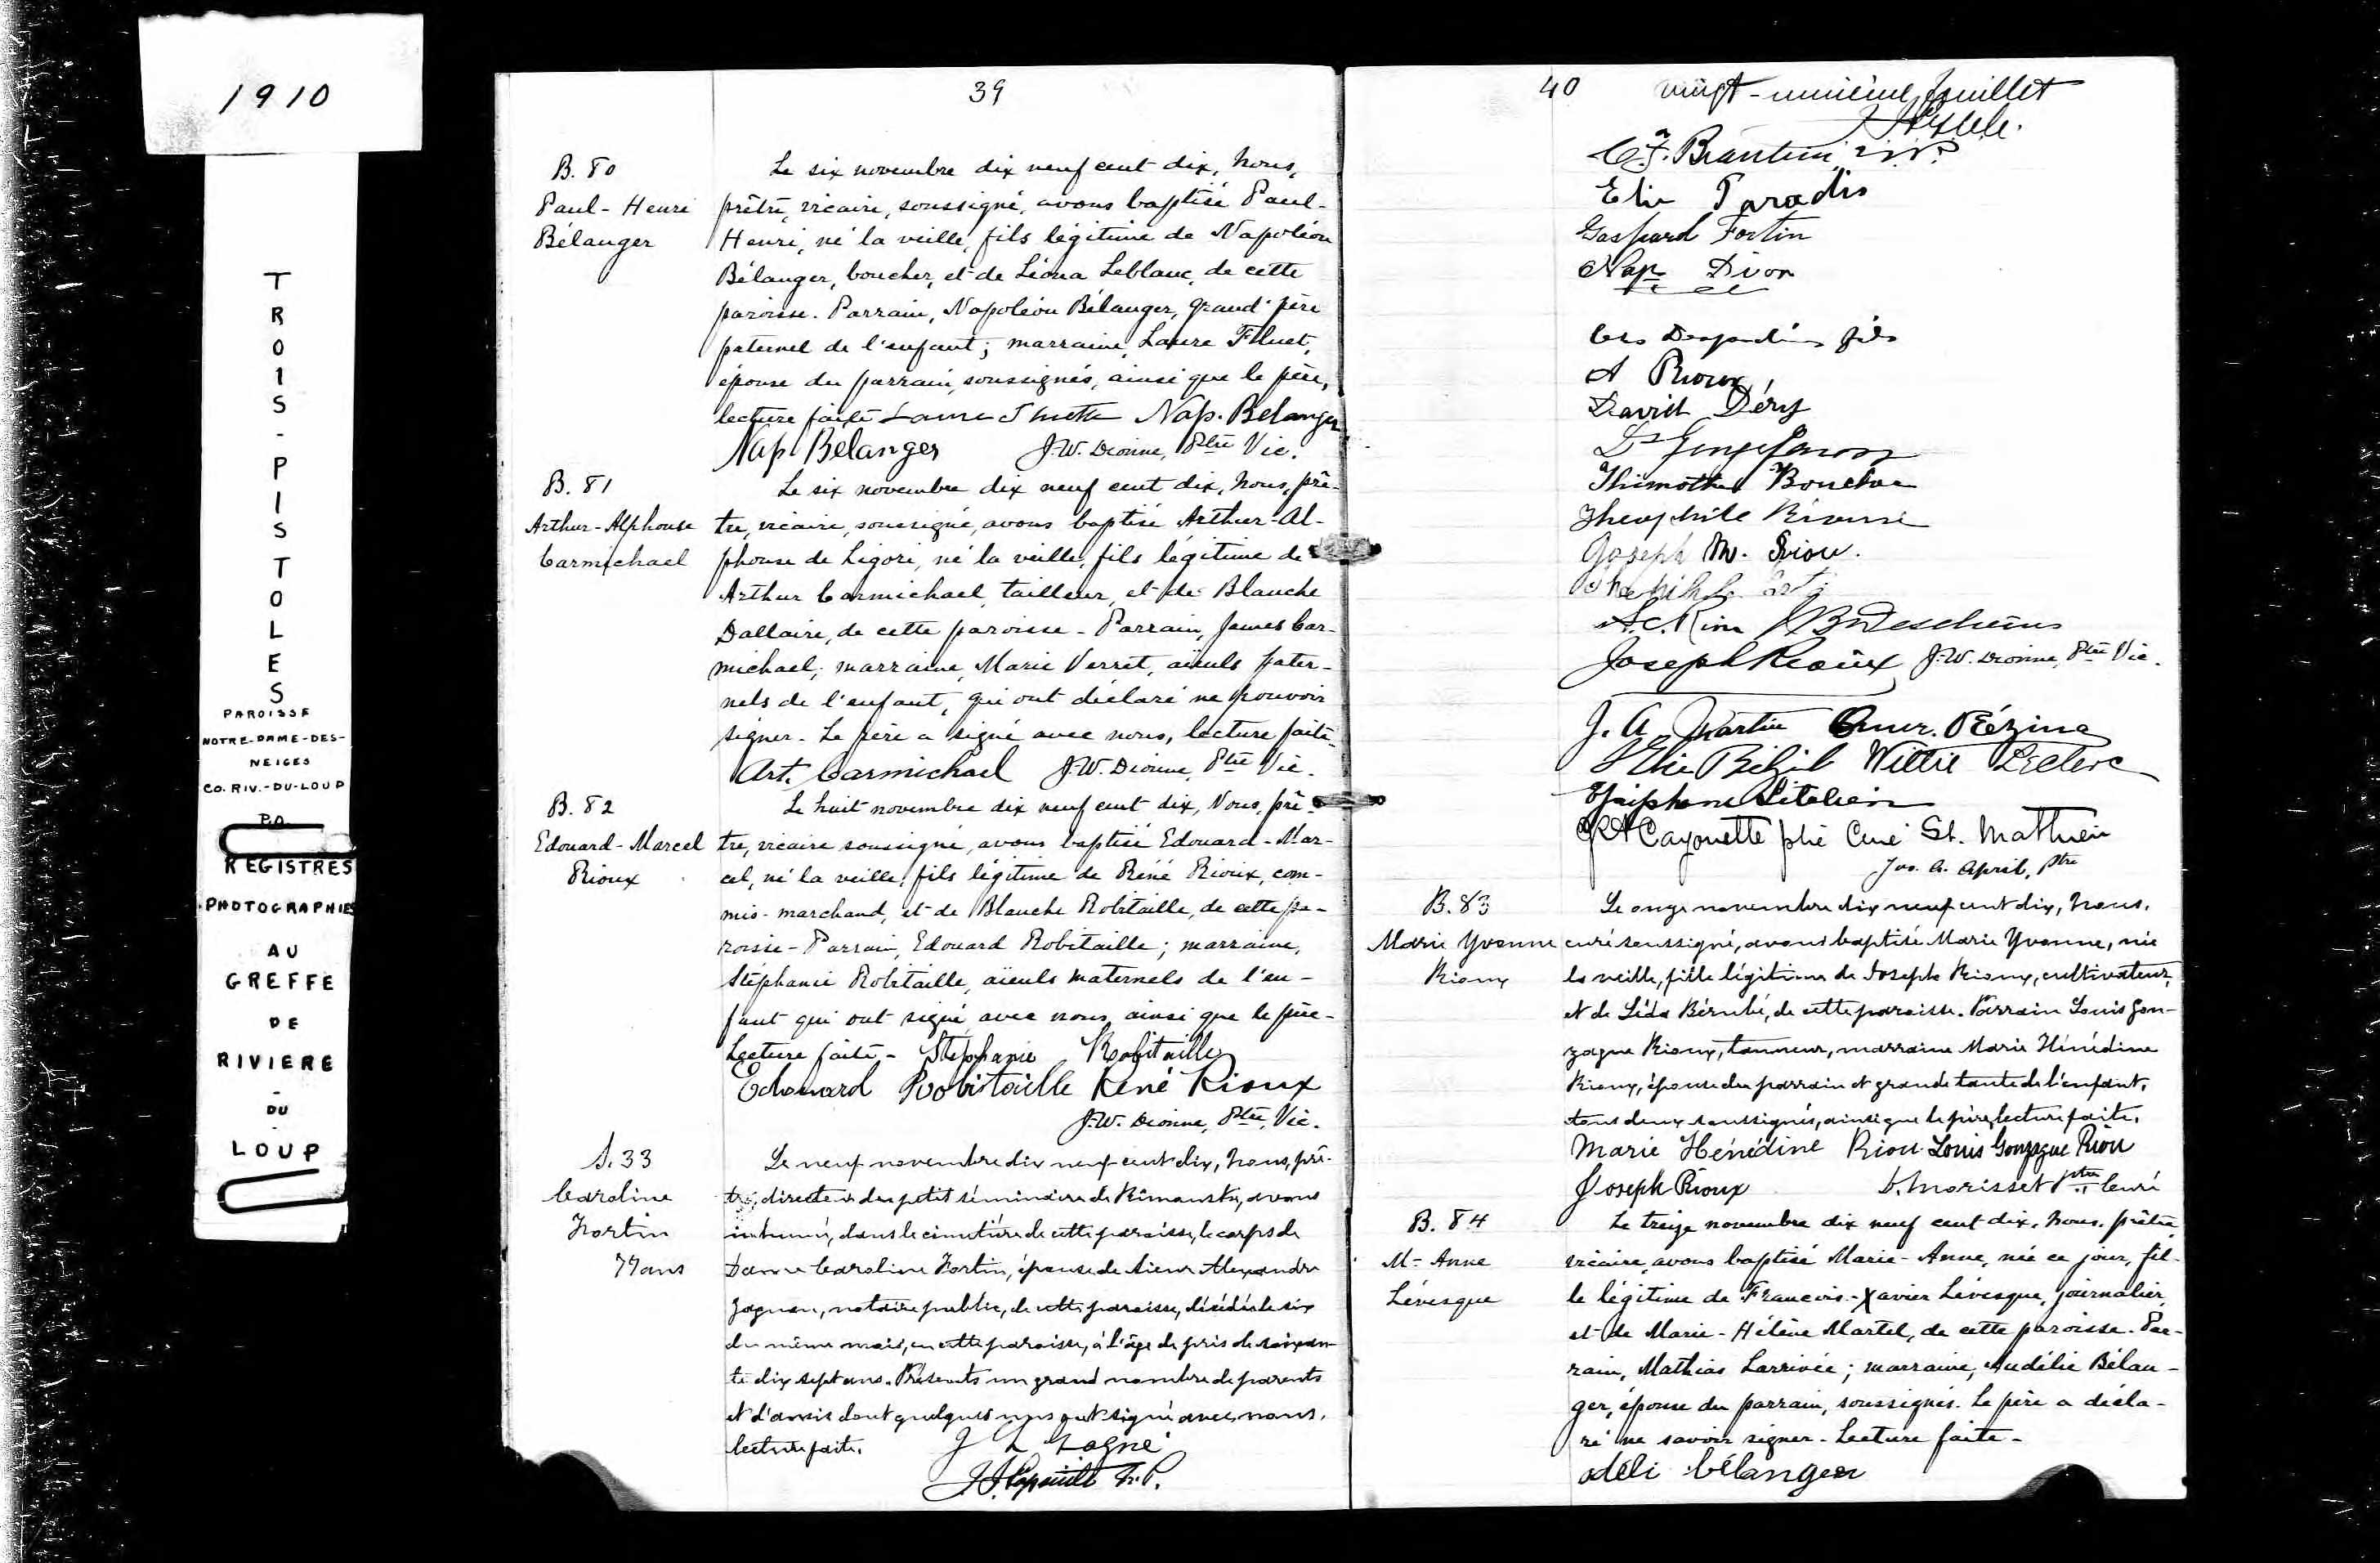 1910
TROIS-PISTOLES
PAROISSE
NOTRE-DAME-DES-
NEIGES
CO. RIV.-DU-LOUP
P.Q.
REGISTRES
PHOTOGRAPHIES
AU
GREFFE
DE
RIVIERE
-
DU
-
LOUP
39
B. 80
Paul-Henri
Bélanger
Le six novembre dix neuf cent dix, Nous,
prêtre, vicaire, soussigné, avons baptisé Paul-
Henri, né la veille, fils légitime de Napoléon
Bélanger, boucher, et de Léona Leblanc, de cette
paroisse. Parrain, Napoléon Bélanger, grand'père
paternel de l'enfant; marraine, Laure Fluet,
épouse du parrain, soussignés, ainsi que le père,
lecture faite Nap. Belanger
Nap Bélanger J.W. Dionne, Ptre Vic.
B. 81
Arthur-Alphonse
Carmichael
Le six novembre dix neuf cent dix, Nous, prê-
tre, vicaire, soussigné, avons baptisé Arthur-Al-
phonse de Ligori, né la veille, fils légitime de
Arthur Carmichael, tailleur, et de Blanche
Dallaire, de cette paroisse - Parrain, James Car-
michael; marraine, Marie Verret, aïeuls pater-
nels de l'enfant, qui ont déclaré ne pouvoir
signer. Le père a signé avec nous, lecture faite.
Art. Carmichael J.W. Dionne, Ptre Vic.
B. 82
Edouard-Marcel
Rioux
Le huit novembre dix neuf cent dix, Nous, prê-
tre, vicaire soussigné, avons baptisé Edouard-Mar-
cel, né la veille, fils légitime de Réné Rioux, com-
mis-marchand, et de Blanche Robitaille, de cette pa-
roisse - Parrain, Edouard Robitaille; marraine,
Stéphanie Robitaille, aïeuls maternels de l'en-
fant qui ont signé avec nous ainsi que le père -
Lecture faite - Stéphanie Robitaille
Edouard Robitaille René Rioux
J.W. Dionne, Ptre, Vic.
S. 33
Caroline
Fortin
77 ans
Le neuf novembre dix neuf cent dix, Nous, prê-
tre, directeur du petit séminaire de Rimouski, avons
inhumé, dans le cimetière de cette paroisse, le corps de
Dame Caroline Fortin, épouse de Sieur Alexandre
Gagnon, notaire public, de cette paroisse, décédée le six
du même mois, en cette paroisse, à l'âge de près de soixan-
te dix sept ans. Présents un grand nombre de parents
et d'amis dont quelques uns ont signé avec nous,
lecture faite.
40
Elie Paradis
Gaspard Fortin
Nap Dion
Desjardins fils
A Rioux
David Déry
Joseph M. Riou.
Joseph Rioux J.W. Dionne, Ptre Vic.
J. A. Martin
Willie Leclerc
Cayouette ptre Curé St. Mathieu
Jos. A. April, ptre
B. 83
Marie Yvonne
Rioux
Le onze novembre dix neuf cent dix, Nous,
curé soussigné, avons baptisé Marie Yvonne, née
la veille, fille légitime de Joseph Rioux, cultivateur,
et de Léda Bérubé, de cette paroisse. Parrain Louis Gon-
zague Rioux, tanneur, marraine Marie Hénédine
Rioux, épouse du parrain et grande tante de l'enfant,
tous deux soussignés, ainsi que le père, lecture faite.
Marie Hénédine Riou Louis Gonzague Riou
Joseph Rioux D. Morisset ptre Curé
B. 84
M- Anne
Lévesque
Le treize novembre dix neuf cent dix, Nous, prêtre
vicaire, avons baptisé Marie-Anne, née ce jour, fil-
le légitime de François-Xavier Lévesque, journalier,
et de Marie-Hélène Martel, de cette paroisse. Par-
rain, Mathias Larrivée; marraine, Audélie Bélan-
ger, épouse du parrain, soussignés. Le père a décla-
ré ne savoir signer - Lecture faite -
adéli bélanger